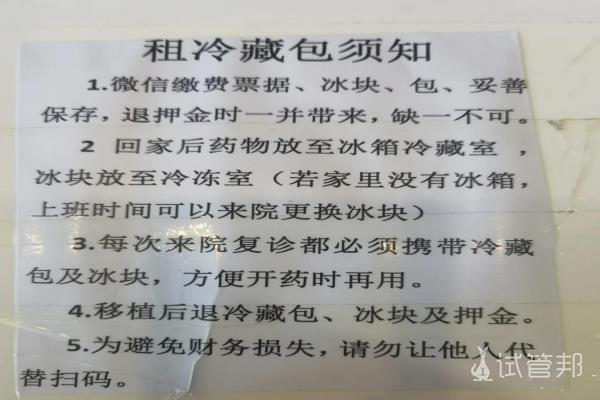 租冷藏包须知
1.微信缴费票据、冰块、包、妥善
保存，退押金时一并带来，缺一不可。
2 回家后药物放至冰箱冷藏室，
冰块放至冷冻室（若家里没有冰箱，
上班时间可以来院更换冰块）
3.每次来院复诊都必须携带冷藏
包及冰块，方便开药时再用。
4.移植后退冷藏包、冰块及押金。
5.为避免财务损失，请勿让他人代
替扫码。
试管邦